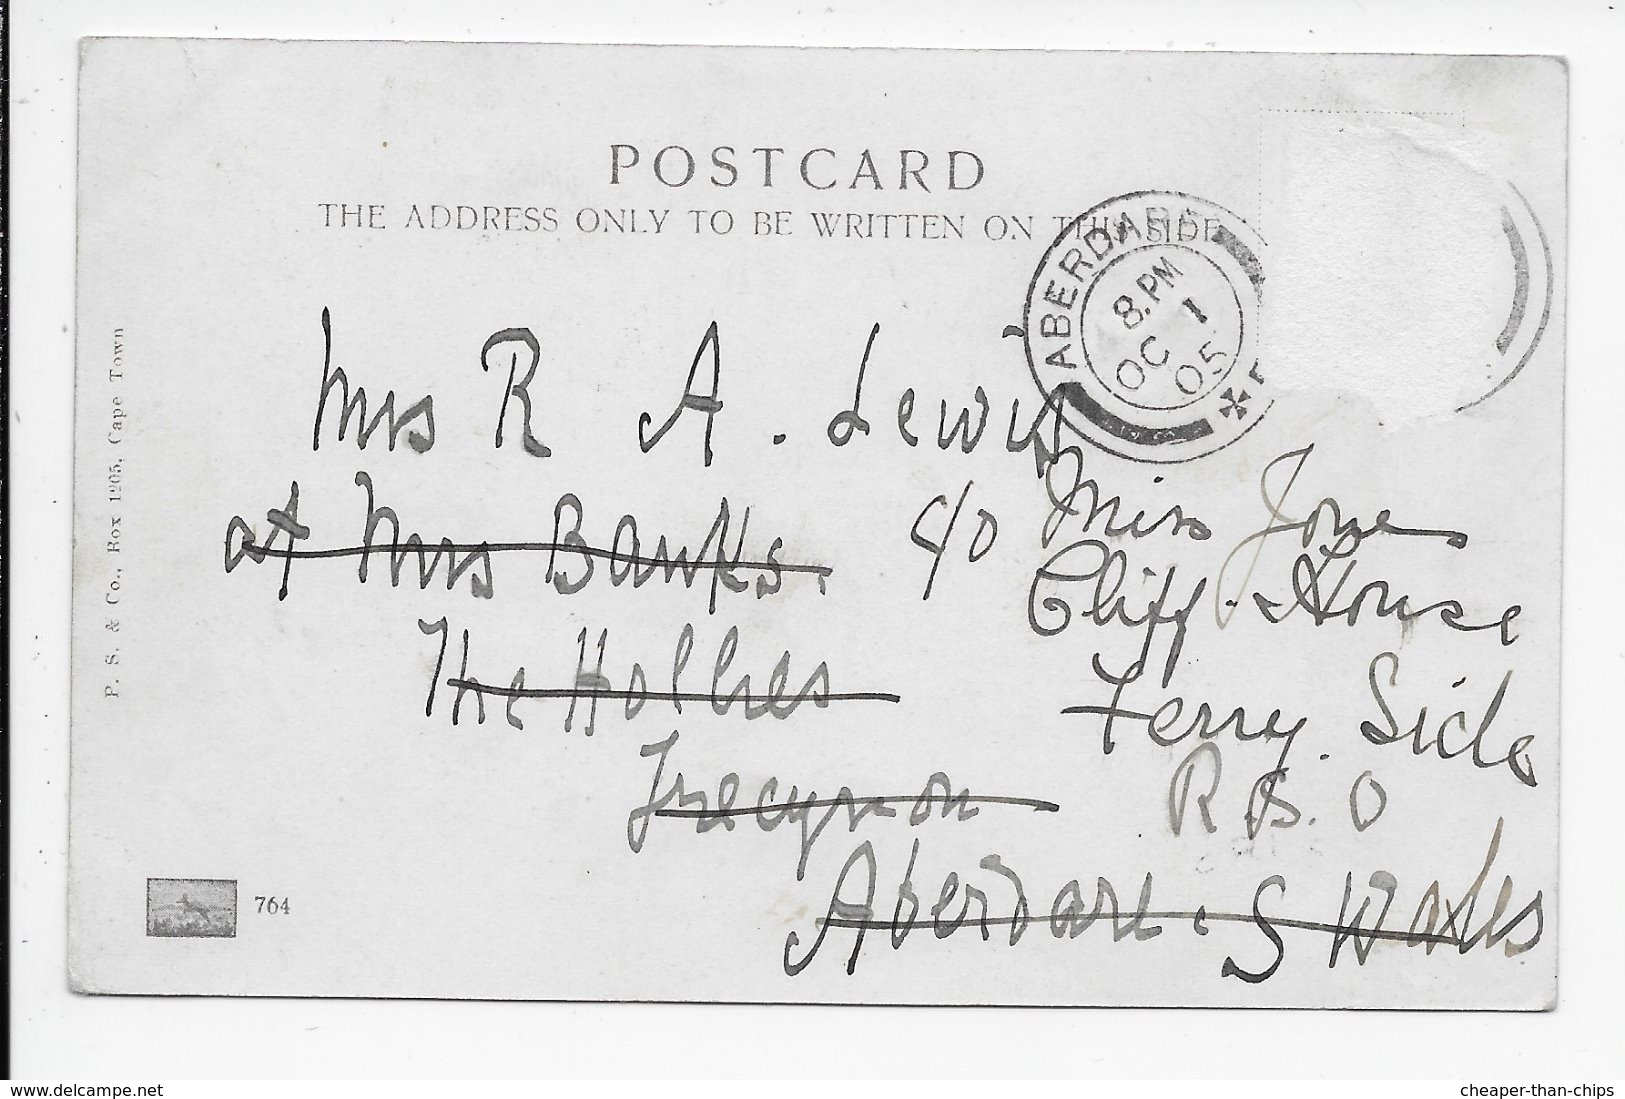 POSTCARD
THE ADDRESS ONLY TO BE WRITTEN ON THIS SIDE
ABERDARE
8.PM
OC 1
05
Mrs R A. Lewis
at Mrs Banks.
The Hollies
Trecynon
Aberdare. S Wales
c/o Miss Jones
Cliff House
Ferry Side
R.S.O
P. S. & Co., Box 1205, Cape Town
764
delcampe.net
cheaper-than-chips